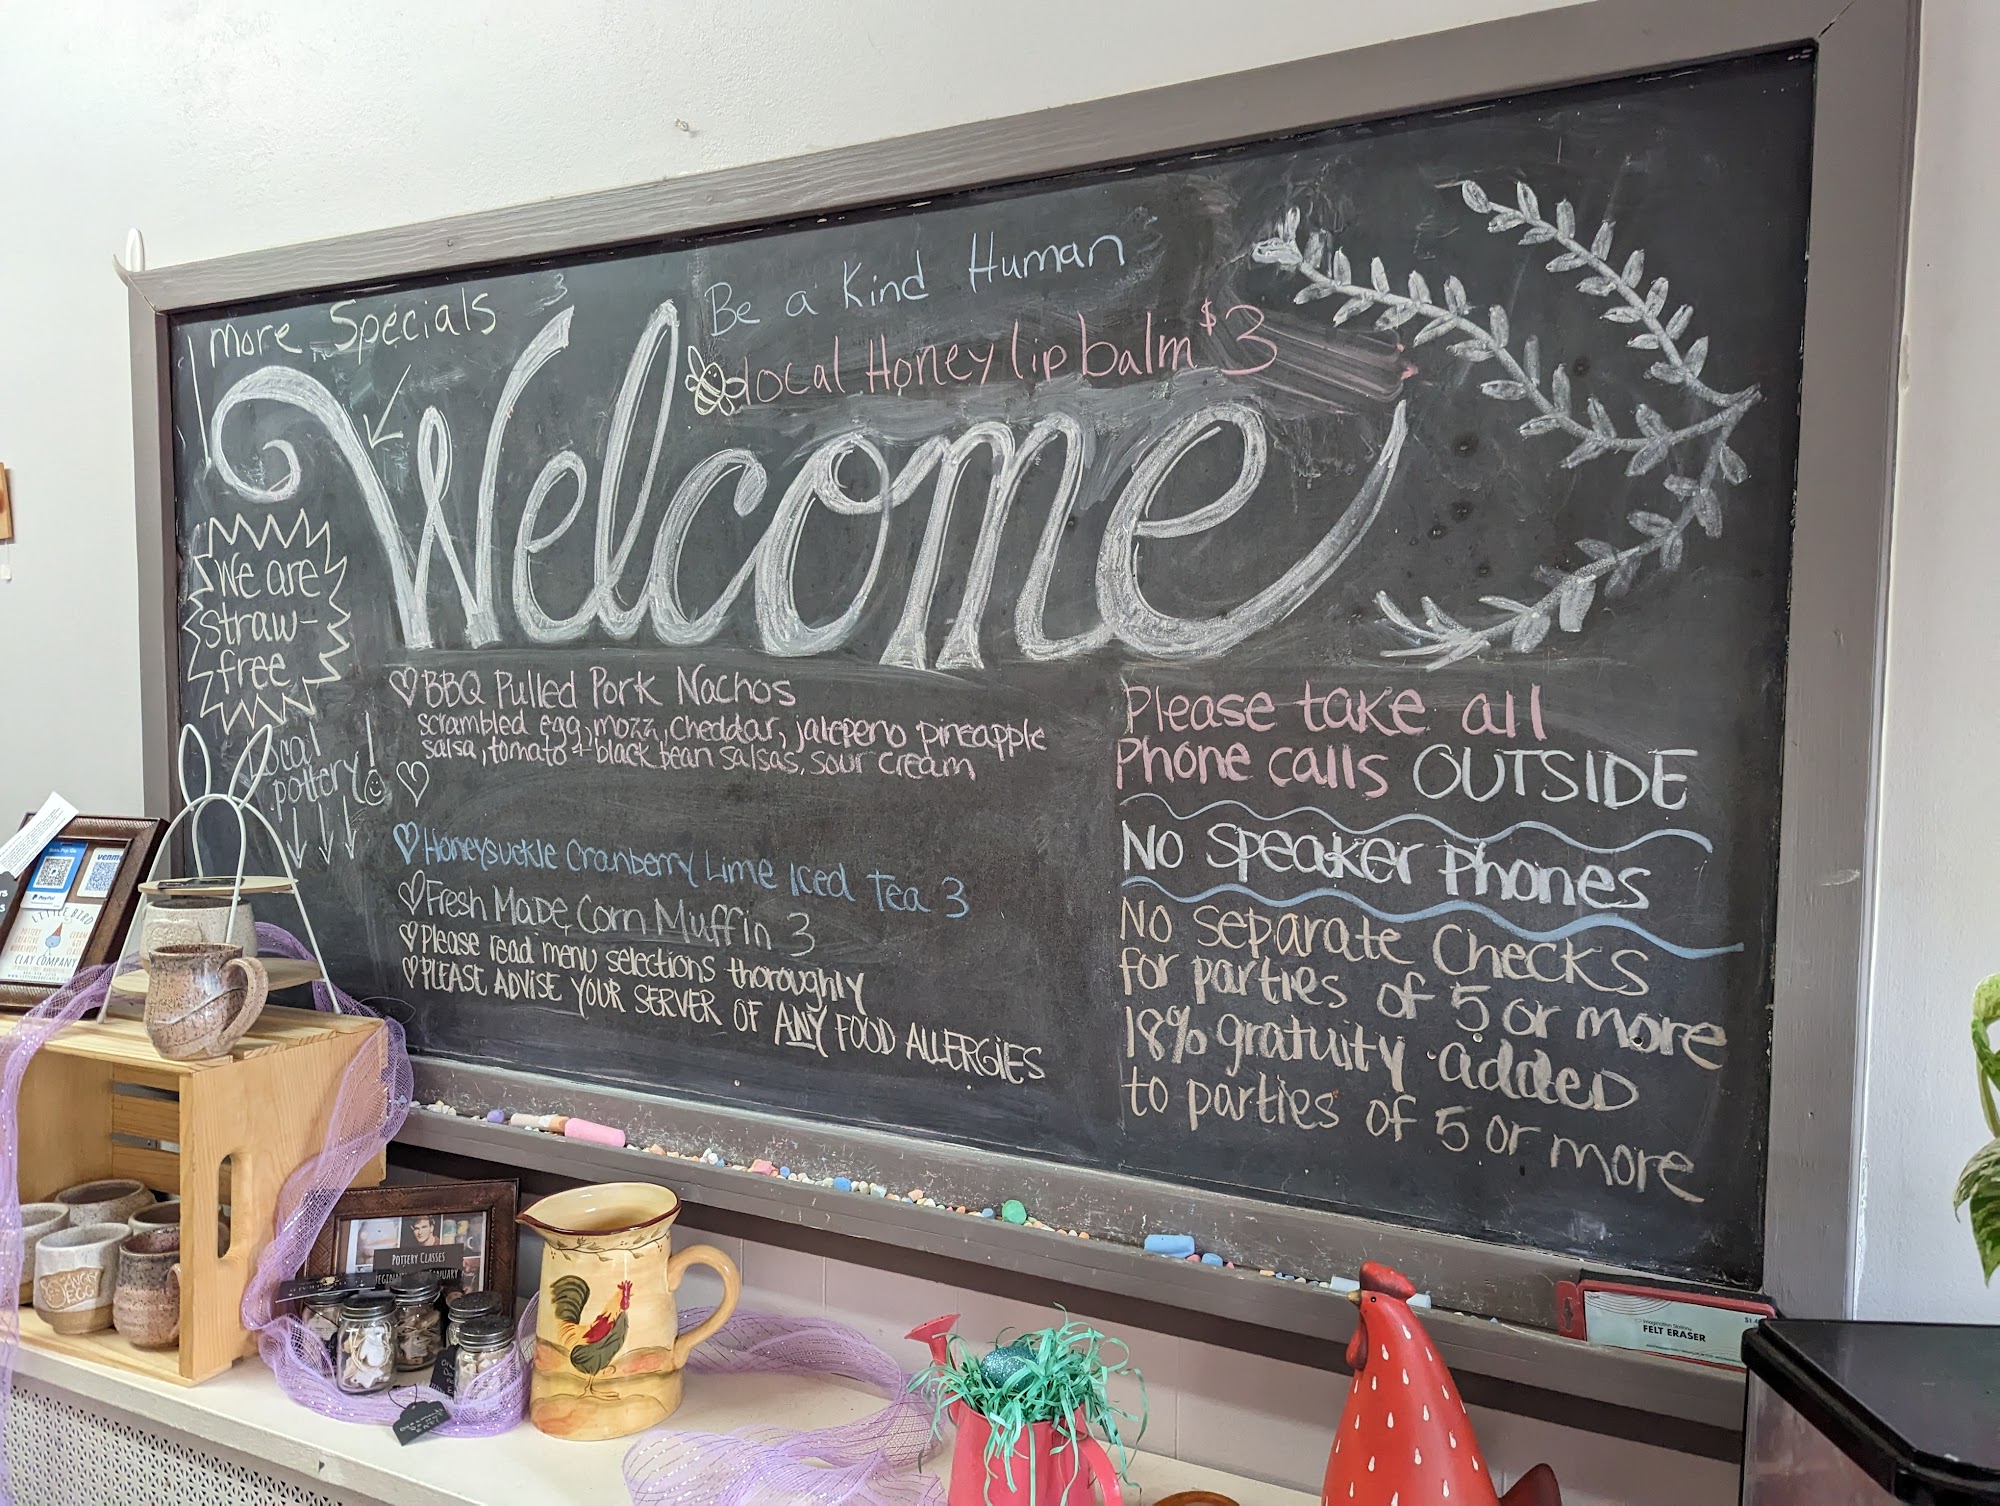 Be a Kind Human
local Honey lip balm $3
more Specials
Welcome
We are
straw-
free
local
pottery!
BBQ Pulled Pork Nachos
scrambled egg, mozz, cheddar, jalepeno pineapple
salsa, tomato + black bean salsas, sour cream
Honeysuckle Cranberry Lime Iced Tea 3
Fresh Made Corn Muffin 3
Please read menu selections thoroughly
PLEASE ADVISE YOUR SERVER OF ANY FOOD ALLERGIES
Please take all
Phone calls OUTSIDE
No Speaker Phones
No separate Checks
for parties of 5 or more
18% gratuity added
to parties of 5 or more
venmo
PayPal
LITTLE BIRD
CLAY COMPANY
POTTERY CLASSES
EGG
FELT ERASER